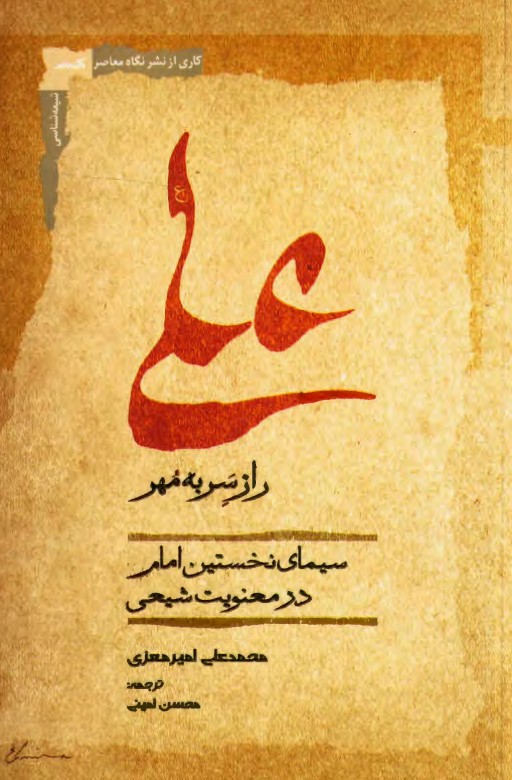 کاری از نشر نگاه معاصر
شیعه‌شناسی
علی
راز سَر به مُهر
سیمای نخستین امام
در معنویت شیعی
محمدعلی امیرمعزی
ترجمه:
محسن امینی